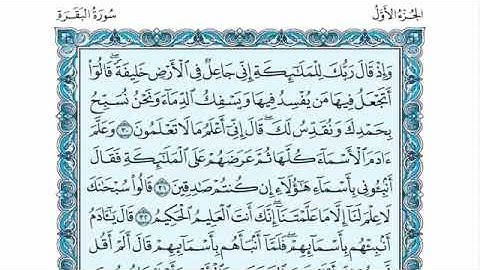 الجزء الأول سورة البقرة
وَإِذْ قَالَ رَبُّكَ لِلْمَلَٰٓئِكَةِ إِنِّى جَاعِلٌ فِى ٱلْأَرْضِ خَلِيفَةً ۖ قَالُوٓا۟
أَتَجْعَلُ فِيهَا مَن يُفْسِدُ فِيهَا وَيَسْفِكُ ٱلدِّمَآءَ وَنَحْنُ نُسَبِّحُ
بِحَمْدِكَ وَنُقَدِّسُ لَكَ ۖ قَالَ إِنِّىٓ أَعْلَمُ مَا لَا تَعْلَمُونَ ٣٠ وَعَلَّمَ
ءَادَمَ ٱلْأَسْمَآءَ كُلَّهَا ثُمَّ عَرَضَهُمْ عَلَى ٱلْمَلَٰٓئِكَةِ فَقَالَ
أَنۢبِـُٔونِى بِأَسْمَآءِ هَٰٓؤُلَآءِ إِن كُنتُمْ صَٰدِقِينَ ٣١ قَالُوا۟ سُبْحَٰنَكَ
لَا عِلْمَ لَنَآ إِلَّا مَا عَلَّمْتَنَآ ۖ إِنَّكَ أَنتَ ٱلْعَلِيمُ ٱلْحَكِيمُ ٣٢ قَالَ يَٰٓـَٔادَمُ
أَنۢبِئْهُم بِأَسْمَآئِهِمْ ۖ فَلَمَّآ أَنۢبَأَهُم بِأَسْمَآئِهِمْ قَالَ أَلَمْ أَقُل